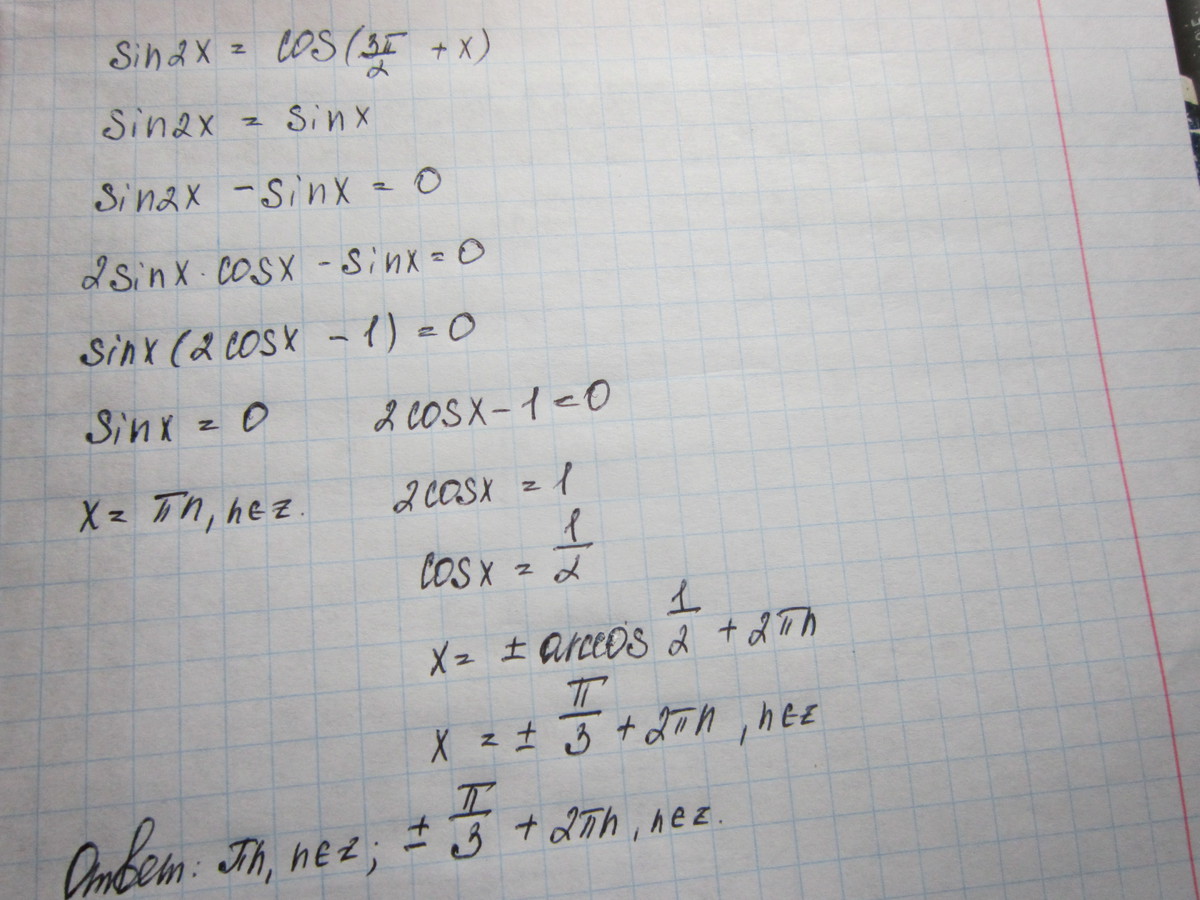 sin2x = cos(3π/2 + x)
sin2x = sinx
sin2x - sinx = 0
2sinx · cosx - sinx = 0
sinx(2cosx - 1) = 0
sinx = 0 2cosx - 1 = 0
x = πn, n∈z. 2cosx = 1
cosx = 1/2
x = ± arccos 1/2 + 2πn
x = ± π/3 + 2πn, n∈z
Ответ: πn, n∈z; ± π/3 + 2πn, n∈z.